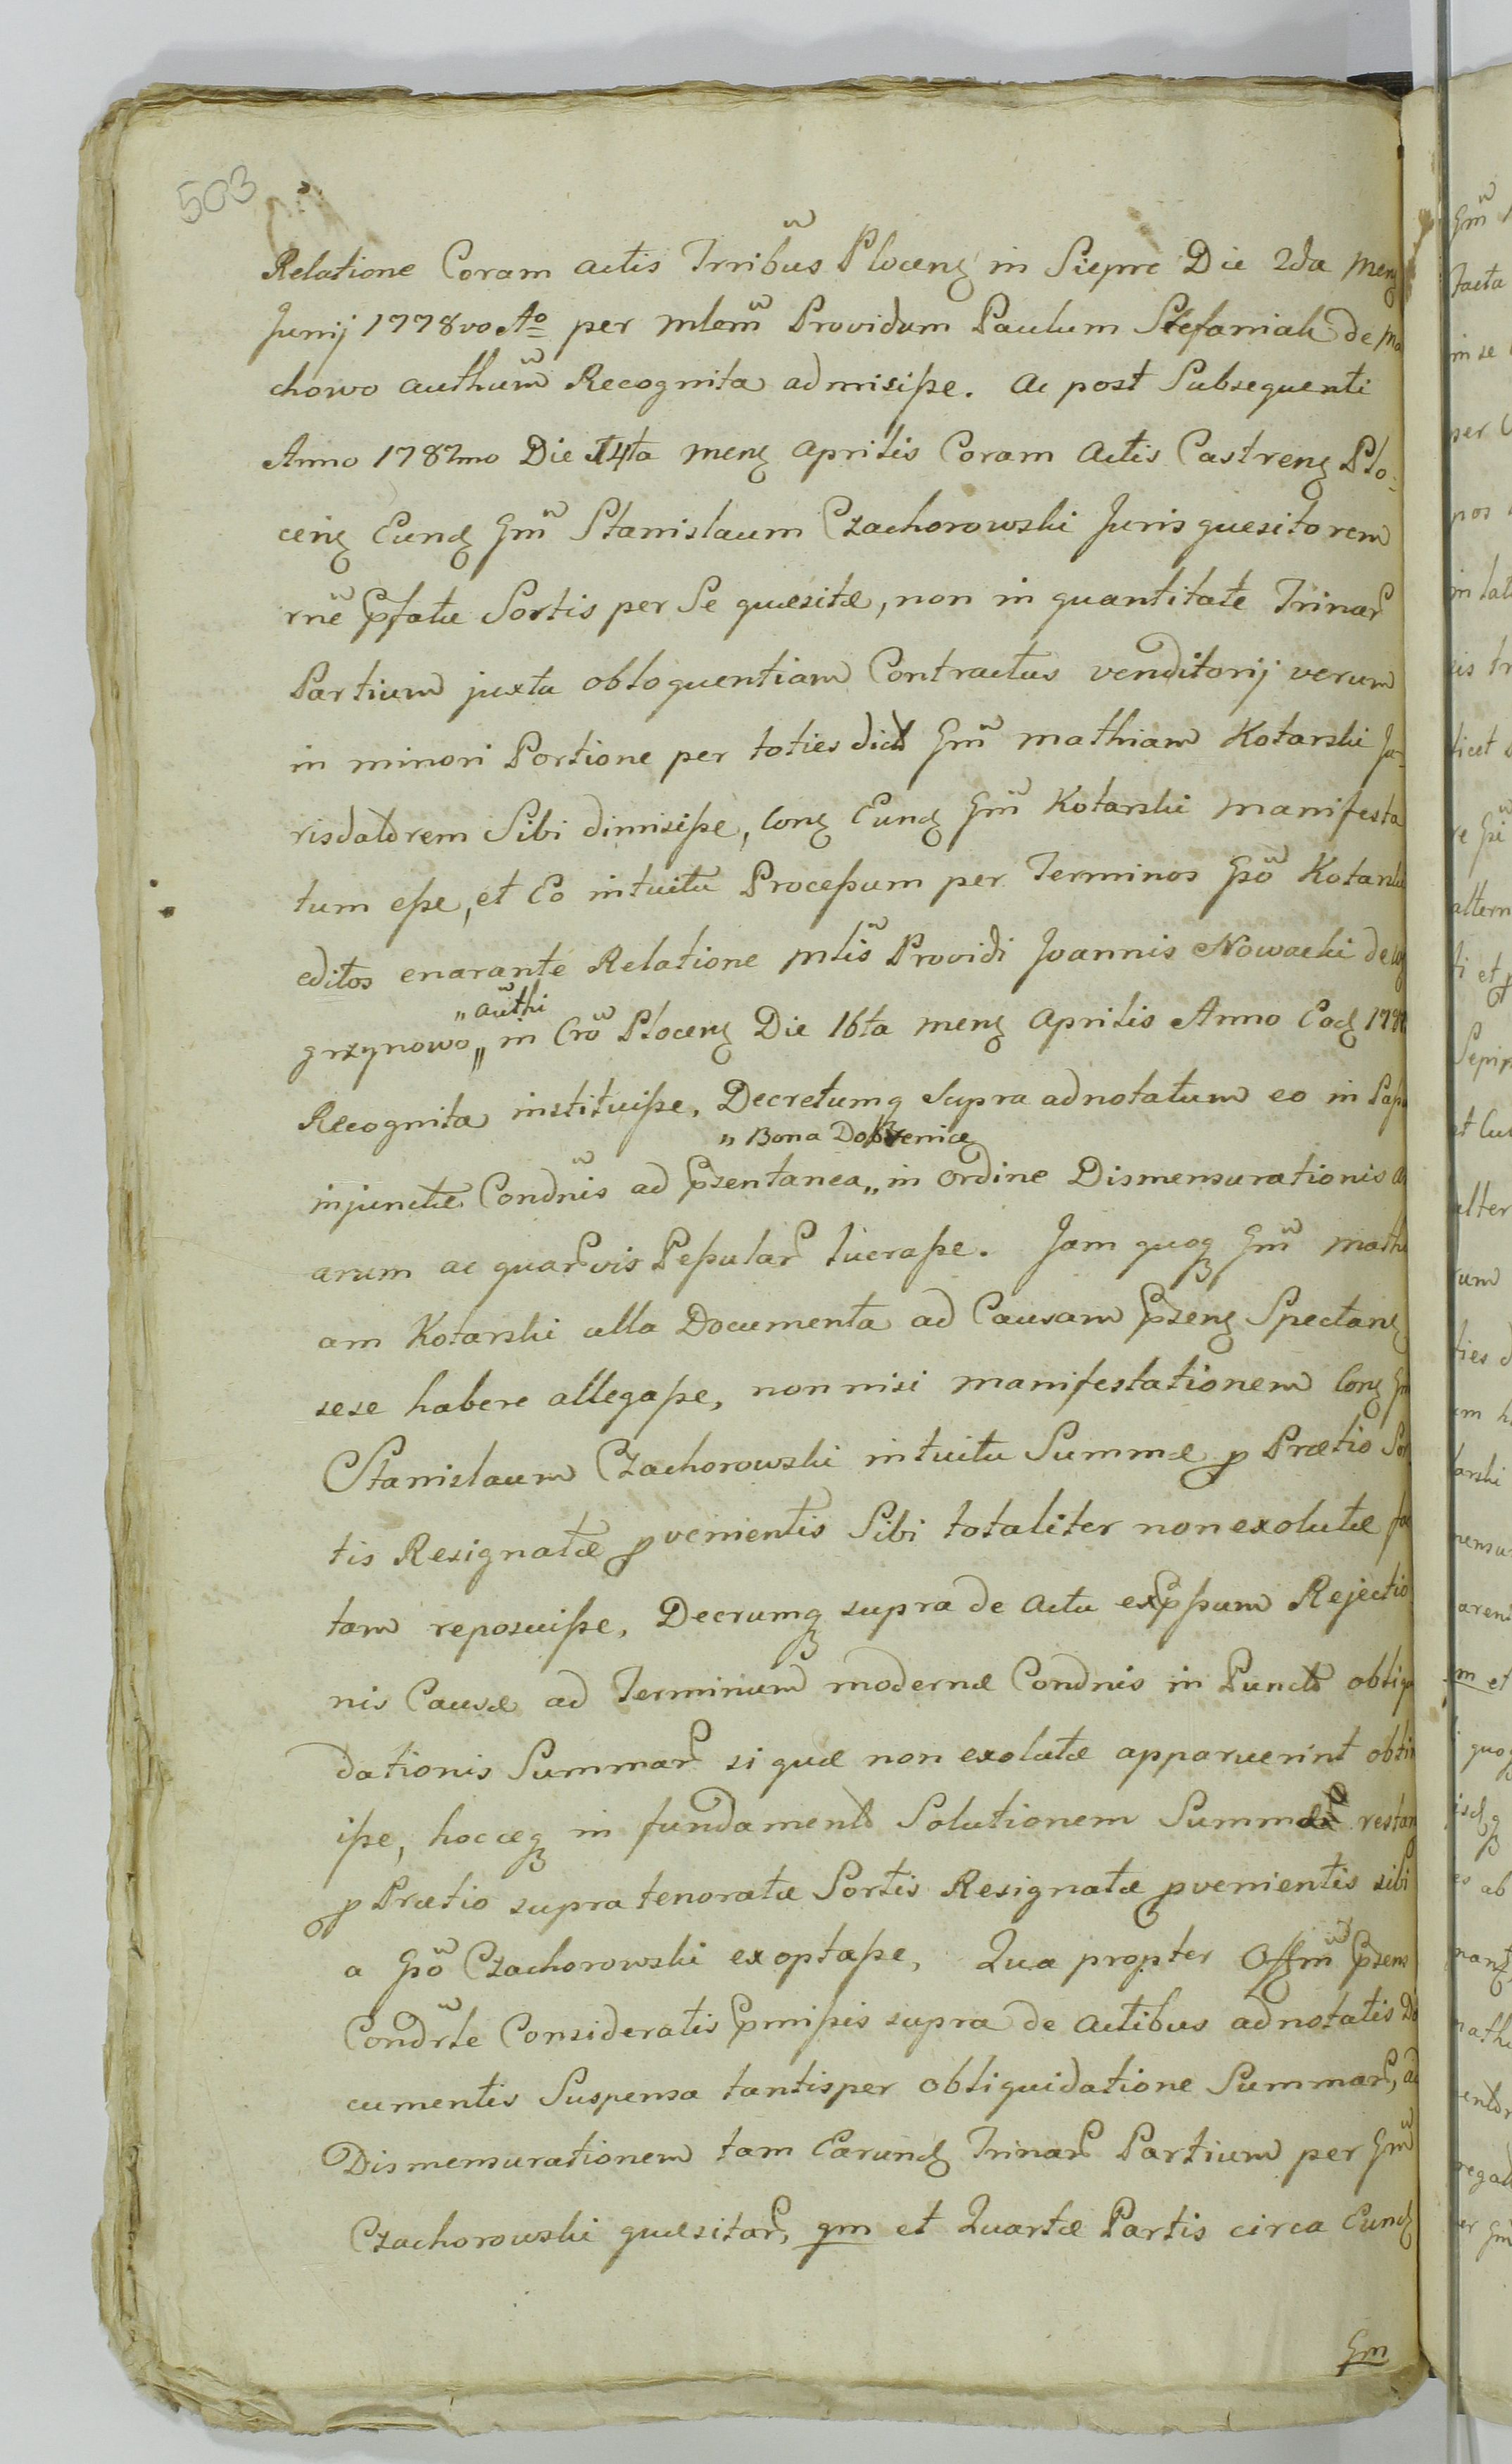 503
Relatione Coram actis Trribus Plocens in Sieprc Die 2da mens
Junij 1778vo Ao per mlem Providum Paulum Stefaniak de Ma
chowo authum Recognita admisisse. Ac post Subsequenti
Anno 1782mo Die 14ta mens Aprilis Coram Actis Castrens Plo-
cens Eund Gm Stanislaum Czachorowski Juris quesitorem
rne Pfatæ Sortis per Se quæsitæ, non in quantitate Trinar
Partium juxta obloquentiam Contractus venditorij verum
in minori Portione per toties dict Gm Mathiam Kotarski Ju-
risdatorem Sibi dimisisse, Cong Eund Gm Kotarski manifesta
tum esse, et Eo intuitu Processum per Terminos Gso Kotarski
editos enarante Relatione mlis Providi Joannis Nowacki de
„ authi
grzynowo „ in Cro Plocens Die 16ta mens Aprilis Anno Eod
Recognita instituisse, Decretumq supra adnotatum eo in
„ Bona Dobrenice
injunctæ Condnis ad Przentanea „ in Ordine Dismensurationis
arum ac quarvis Pessular lucrasse. Jam quoq Gm Mathi
am Kotarski ulla Documenta ad Causam Przens Spectans
sese habere allegasse, non nisi manifestationem Cong
Stanislaum Czachorowski intuitu Summæ p Prætio Sor
tis Resignatæ pvenientis Sibi totaliter non exolutæ fa
tam reposuisse, Decrumq supra de Actu exPssum Rejectio
nis Causæ ad Terminum modernæ Condnis in Puncto obliqu
dationis Summar si quæ non exolutæ apparuerint obtin
isse, hocceq in fundamento Solutionem Summæ restan
p Prætio supra tenoratæ Sortis Resignatæ pvenientis sibi
a Gso Czachorowski exoptasse, Qua propter Offm Przens
Condrte Consideratis Pmissis supra de Actibus adnotatis Do
cumentis Suspensa tantisper obliquidatione Summar, ad
Dismensurationem tam Earund Trinar Partium per Gm
Czachorowski quæsitar, qm et Quartæ Partis circa Eund
Gm